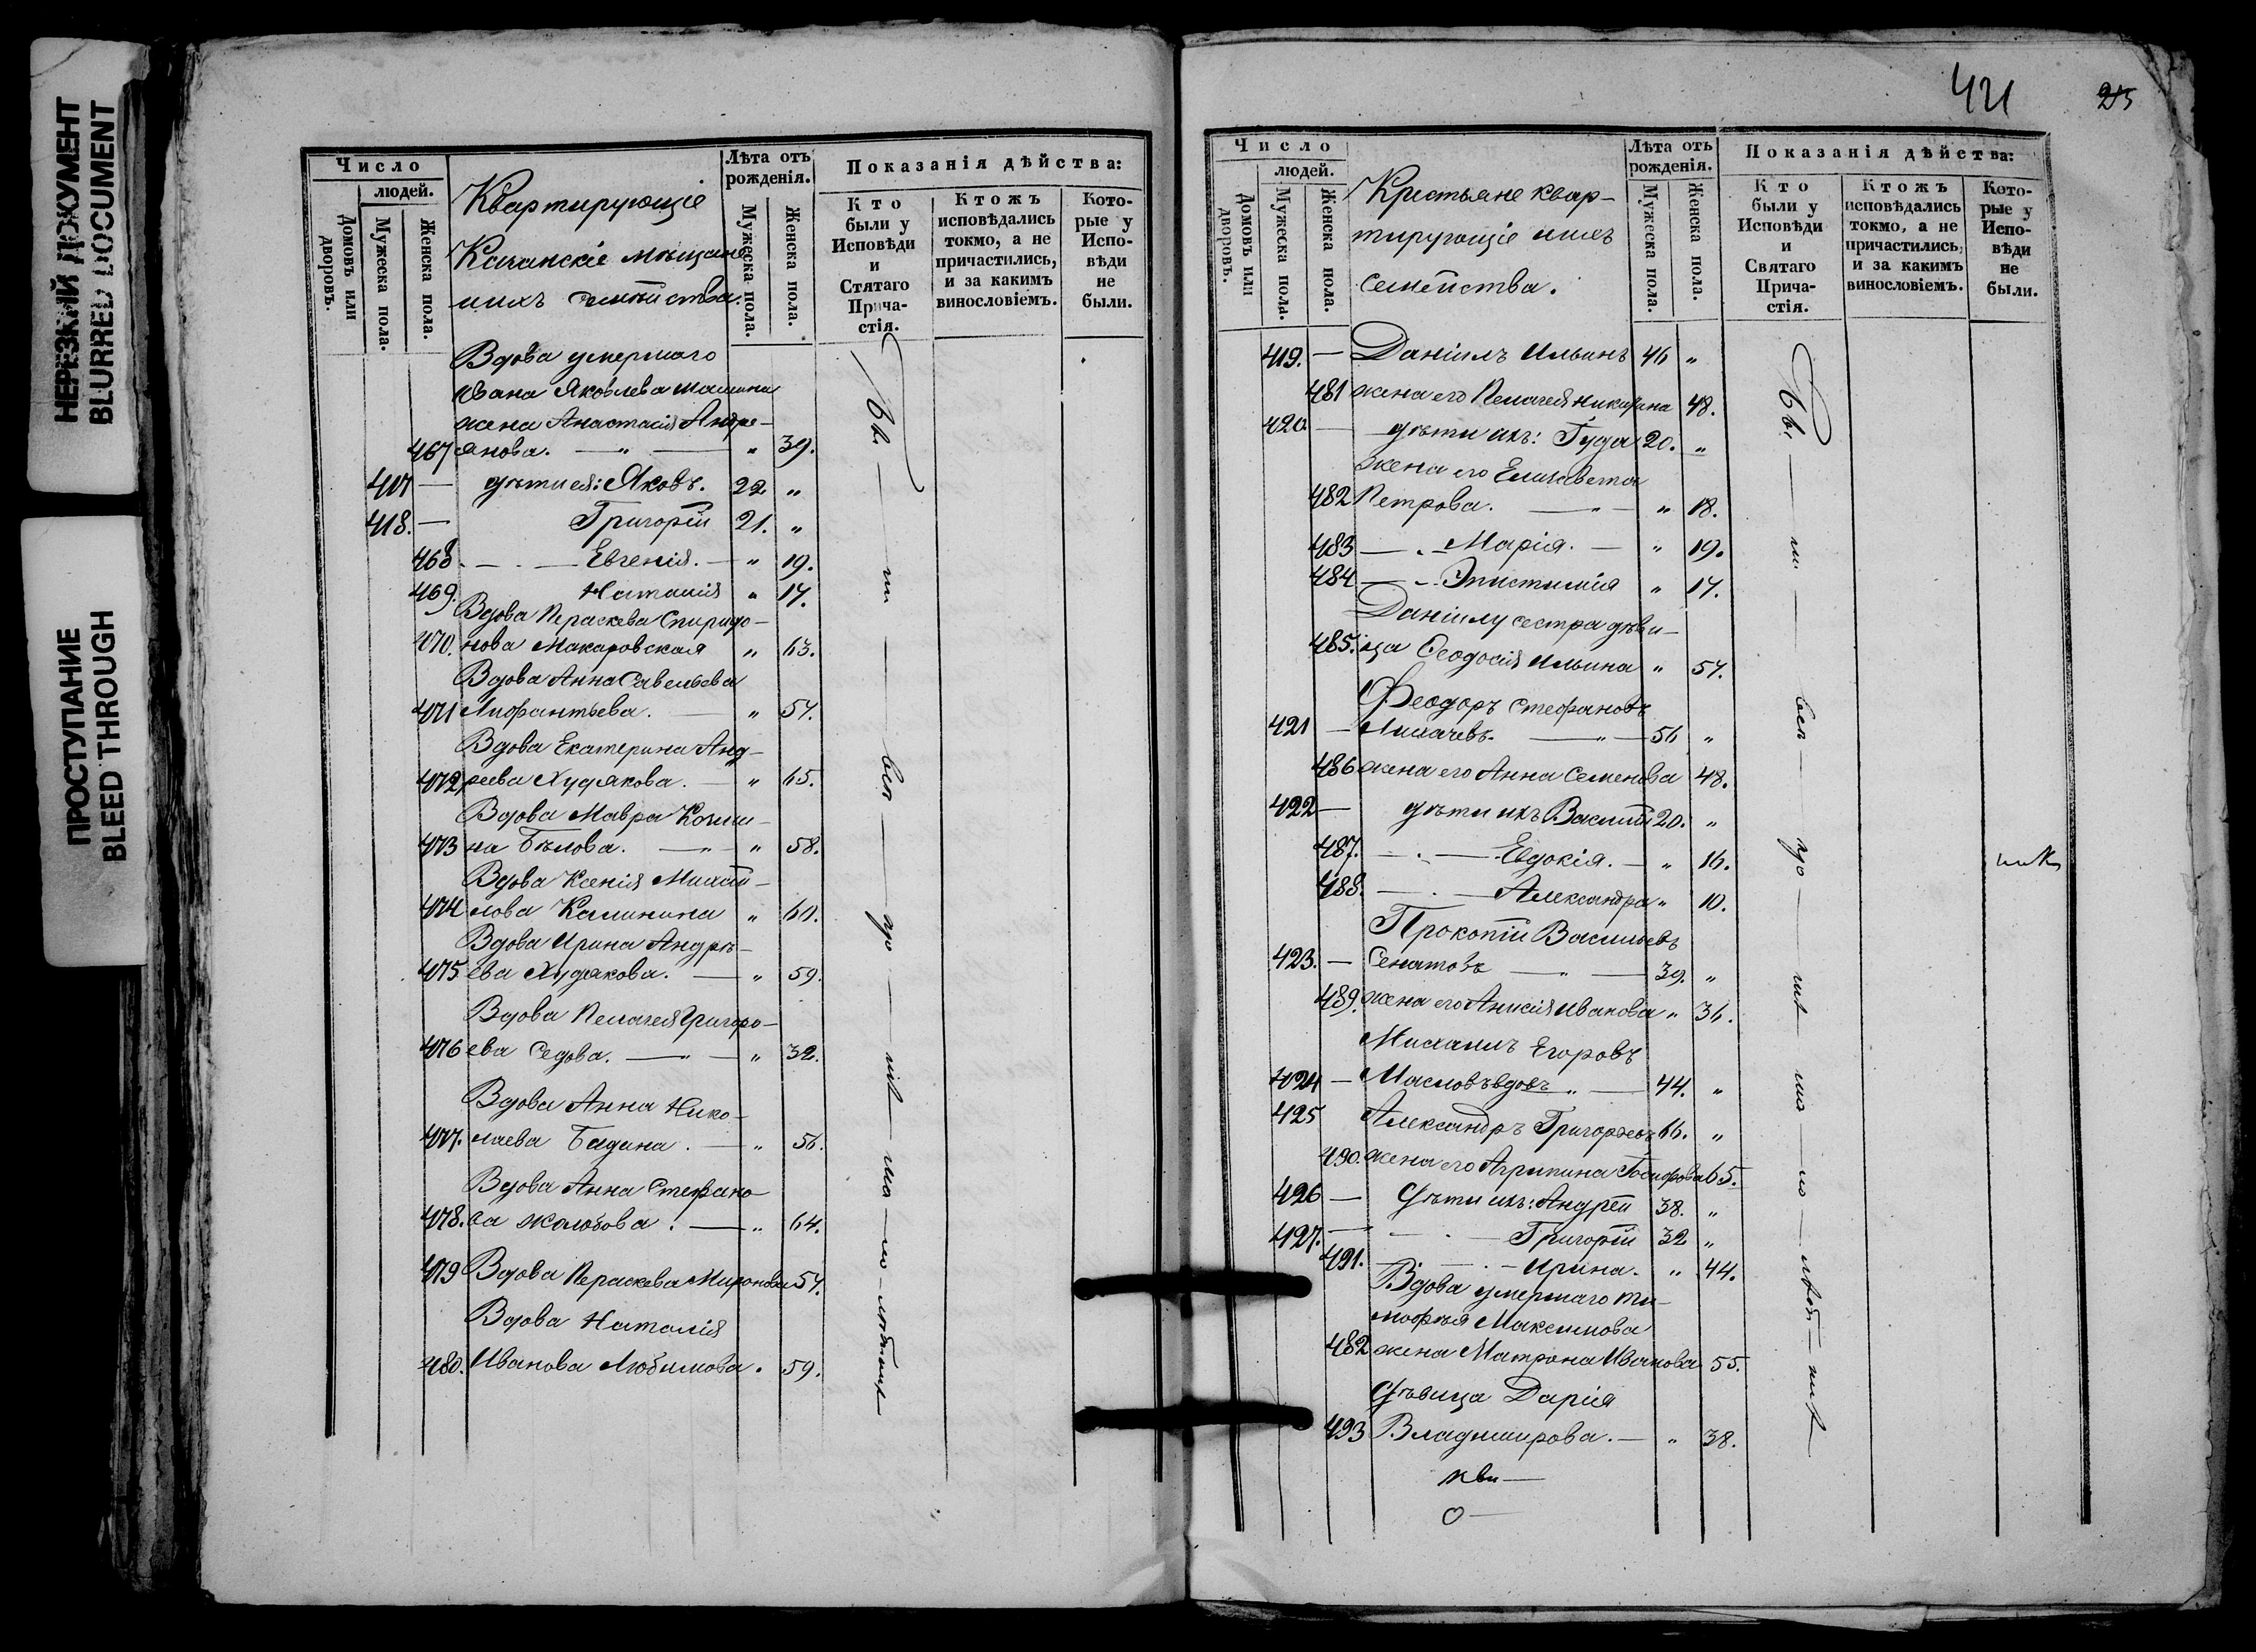 НЕРЕЗКИЙ ДОКУМЕНТ
BLURRED DOCUMENT
ПРОСТУПАНИЕ
BLEED THROUGH
Число
людей.
Домовъ или дворовъ.
Мужеска пола.
Женска пола.
Квартирующіе
мѣщане
ихъ семѣйства.
Лѣта отъ рожденія.
Мужеска пола.
Женска пола.
Показанія дѣйства:
Кто были у Исповѣди и Стятаго Прича-стія.
Ктожъ исповѣдались токмо, а не причастились, и за какимъ винословіемъ.
Кото-рые у Испо-вѣди не были.
Вдова умершаго
Ивана Яковлева
жена Анастасія Андре-
467 янова. — " — " 39.
417 — дѣти ея: Яковъ. 22 "
418. — Григорій 21. "
468. — Евгенія. — " 19.
469. Наталія " 17.
Вдова Параскева Спиридо-
470. нова Макаровская " 63.
Вдова Анна Савельева
471 Лифантьева. — " 57.
Вдова Екатерина Анд-
472 реева Худякова. — " 65.
Вдова Мавра Козми-
473 на Бѣлова. — " — " 58.
Вдова Ксенія Михай-
474 лова Калинина " 60.
Вдова Ирина Андрѣ-
475 ева Худякова. — " 59.
Вдова Пелагея Григорь-
476 ева Седова. — " — " 32.
Вдова Анна Нико-
477. лаева Бадина. — " 56.
Вдова Анна Стефано-
478. ва Жолобова. — " 64.
479 Вдова Параскева Миронова 57.
Вдова Наталія
480. Иванова Любимова. 59.
421
25
Число
людей.
Домовъ или дворовъ.
Мужеска пола.
Женска пола.
Крестьяне квар-
тирующіе и ихъ
семейства.
Лѣта отъ рожденія.
Мужеска пола.
Женска пола.
Показанія дѣйства:
Кто были у Исповѣди и Святаго Прича-стія.
Ктожъ исповѣдались токмо, а не причастились, и за какимъ винословіемъ.
Кото-рые у Испо-вѣди не были.
419. — Даніилъ Ильинъ 46 "
481 жена его Пелагея Никитина 48.
420 — дѣти ихъ: Іуда 20. "
жена его Елисавета
482 Петрова. — " — " 18.
483 — " — Марія. — " 19.
484 — " Эпистимія " 17.
Даніилу сестра дѣви-
485. ца Ѳеодосія Ильина " 57.
Ѳеодоръ Стефановъ
421 — Лихачевъ. — " — 56 "
486 жена его Анна Семенова 48.
422 — дѣти ихъ Василій 20. "
487. — " — Евдокія. — " 16.
488. — " — Александра " 10.
Прокопій Васильевъ
423. — Сенатовъ — " — 39. "
489. жена его Анисія Иванова " 36.
Михаилъ Егоровъ
424 — Масловъ вдовъ " — 44. "
425 Александръ Григорьевъ 66. "
490. жена его Агрипина Іосифова 65.
426 — Дѣти ихъ: Андрей 38. "
427. — " — Григорій 32 "
491. — " — Ирина. " 44.
Вдова умершаго Ти-
мофѣя Максимова
482 жена Матрона Иванова 55.
Дѣвица Дарія
493 Владимирова. — " 38.